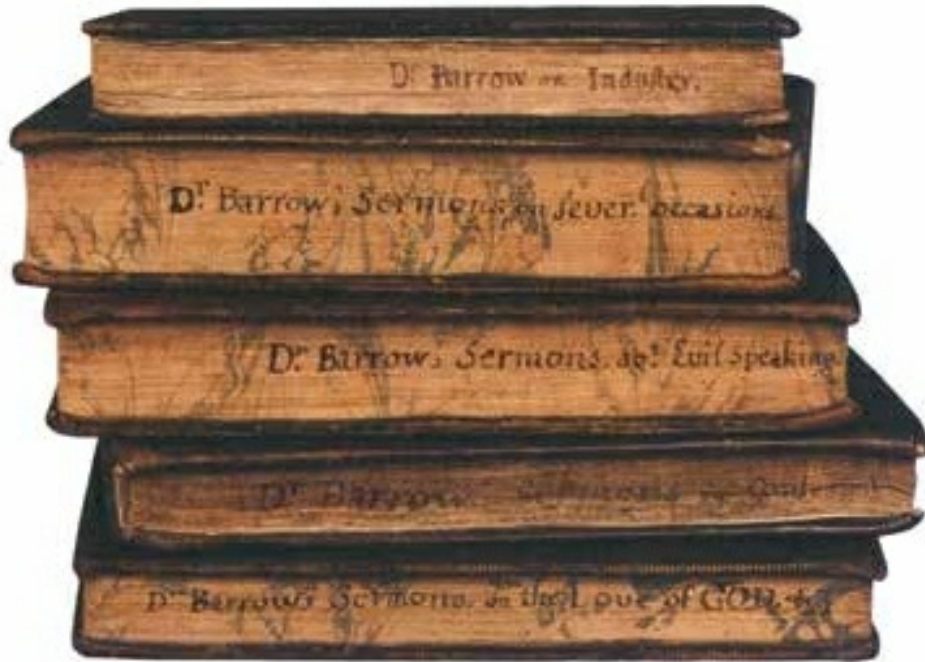 Dr Barrow on Industry.
Dr. Barrow's Sermons on sever.l occasions
Dr. Barrow's Sermons. agt. Evil speaking
Dr Barrow Sermons
Dr Barrow's Sermons. on the Love of GOD